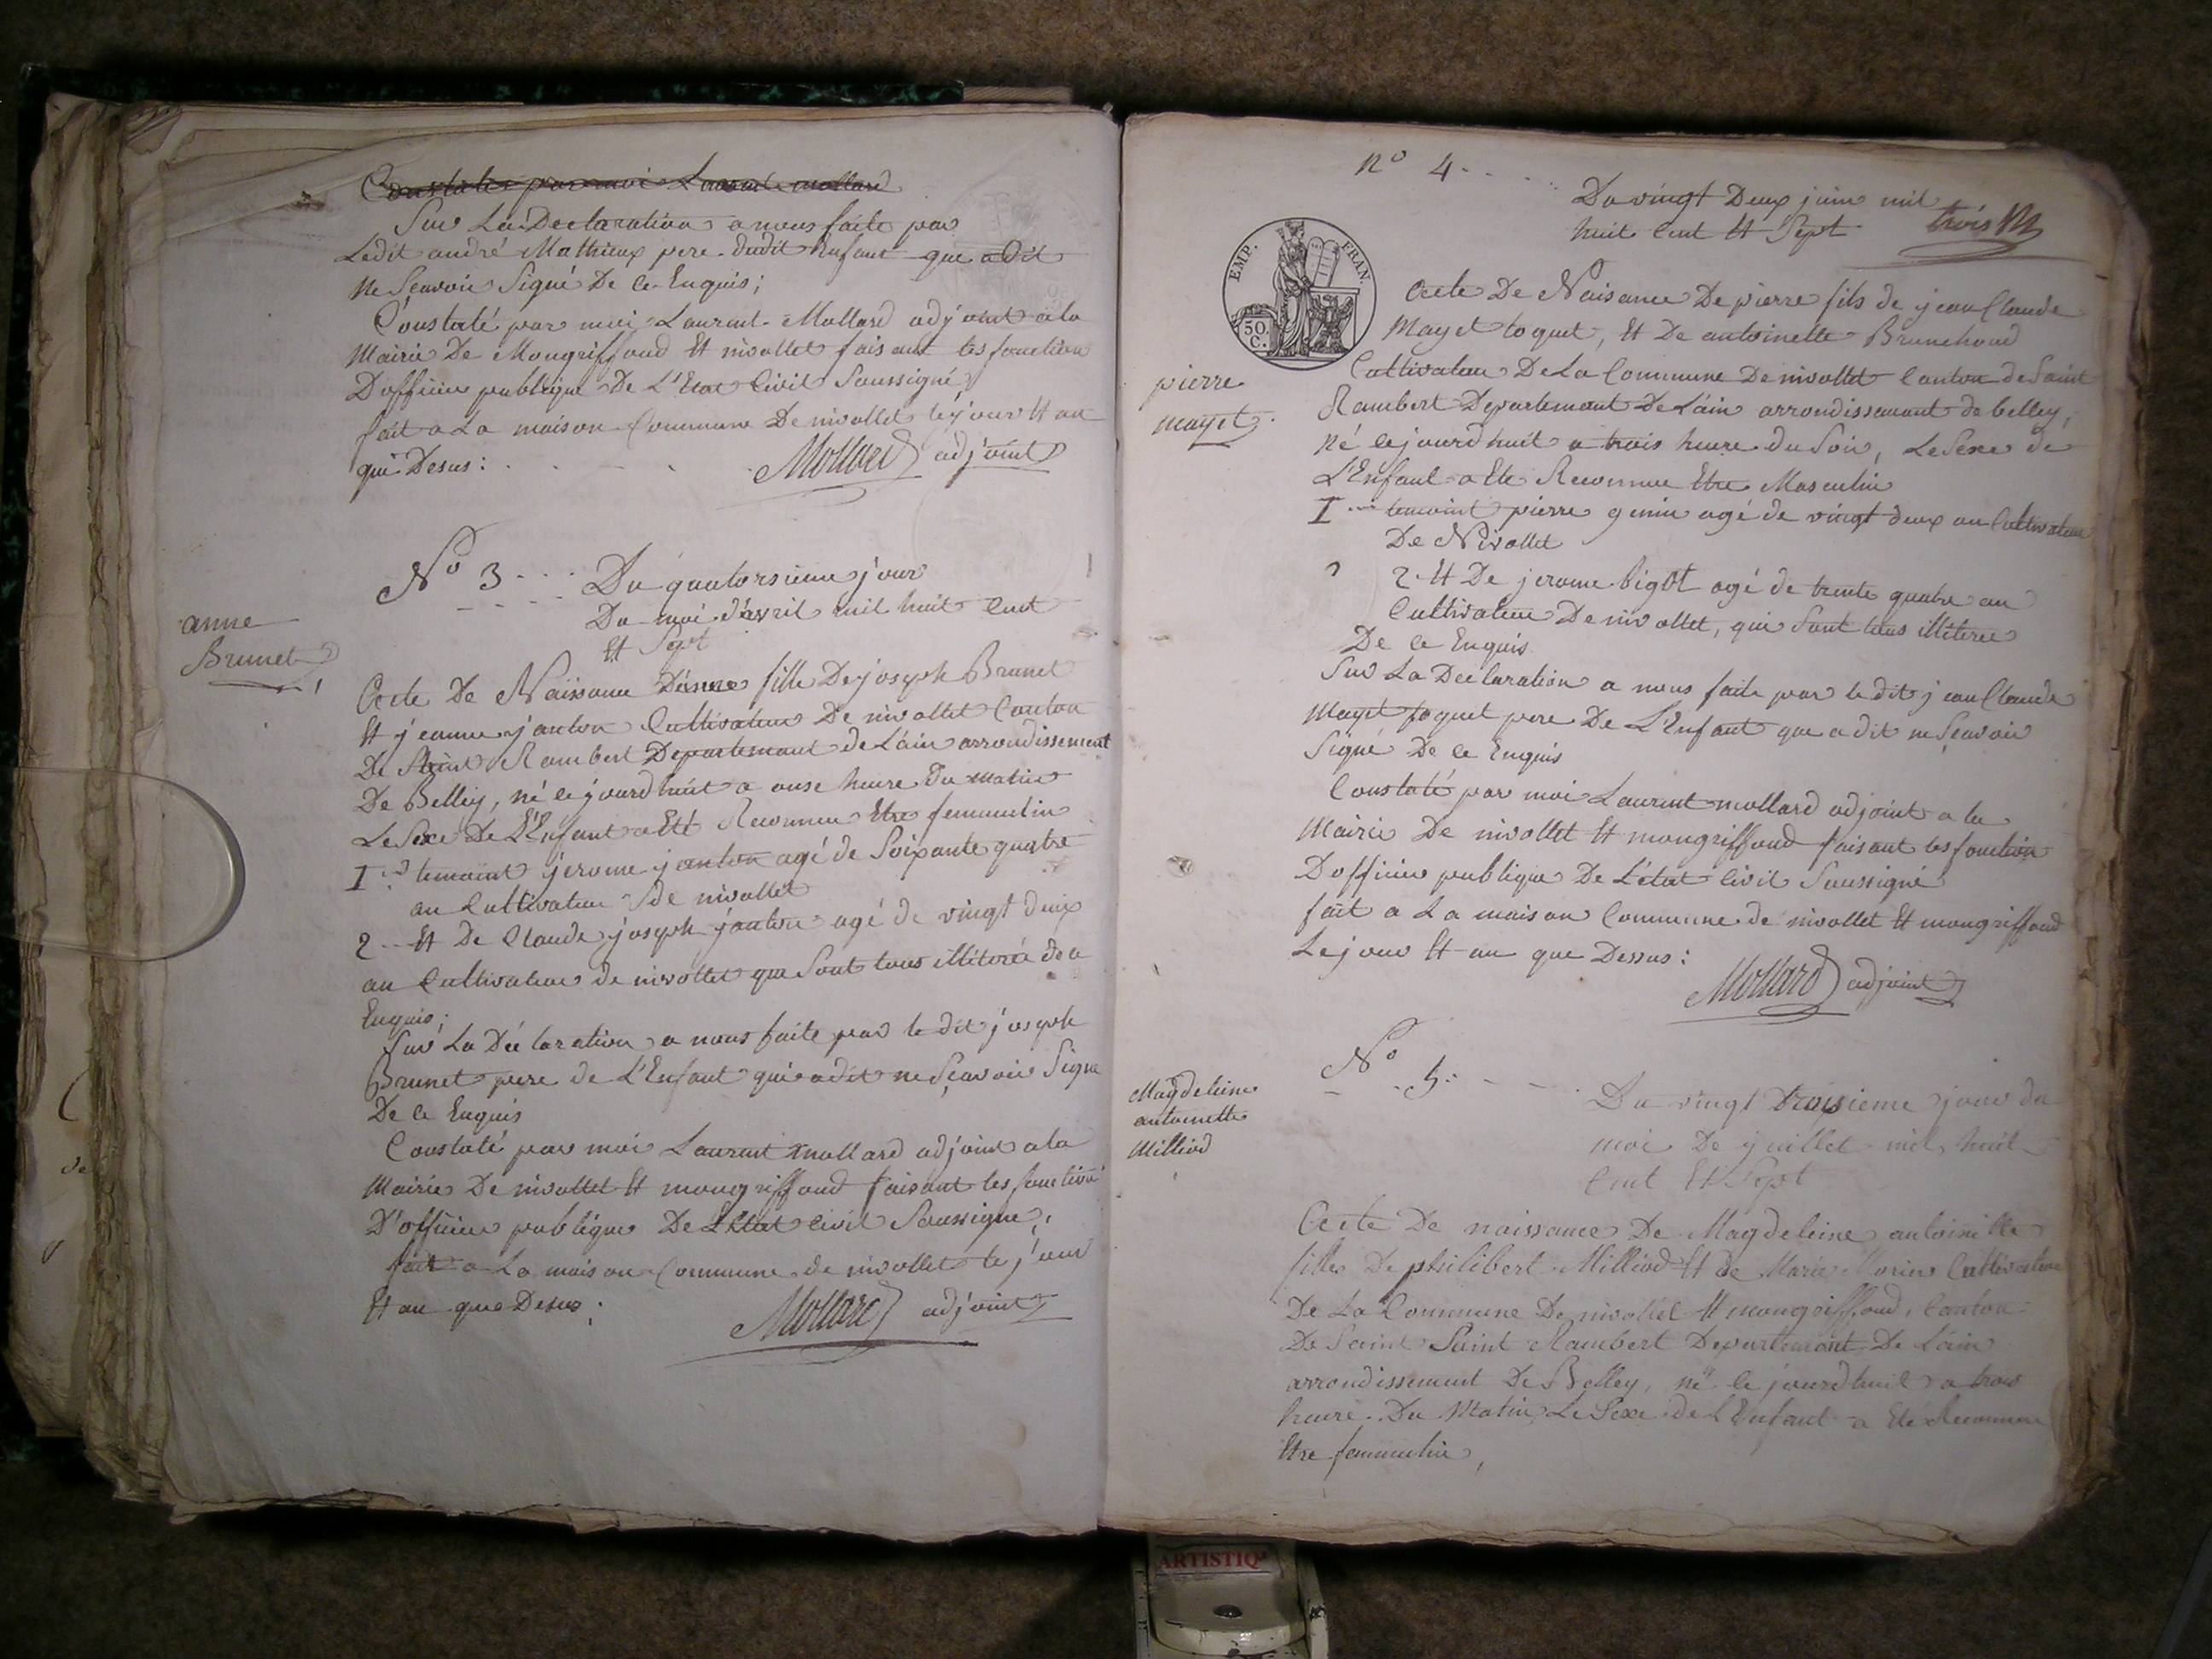 Constates par moi Laurent mollard
Sur La Declaration a nous faite par
Ledit andré Mathieux pere dudit Enfant que a dit
Ne Scavoir Signé De ce Enquis;
Constaté par moi Laurent Mollard adjoint a la
Mairie De Mongriffond Et nivollet faisant les fonction
D'officier publique De L'Etat Civil Soussigné,
fait a La maison Commune De nivollet le jour Et an
que Desus :
Mollard adjoint
anne
Brunet
No 3
Du quatorsieme jour
Du moi d'avril mil huit Cent
Et Sept
Acte De Naissance D'anne fille De joseph Brunet
Et jeanne janton Cultivateur De nivollet Canton
De Saint Rambert Departemant de L'ain arrondissement
De Belley, né cejourdhuit a onse heure Du matin
Le Sexe De L'Enfant a Eté Reconnue Etre femmulin
I temoint jerome janton agé de Soixante quatre
an Cultivateur de nivollet
2 Et De Claude joseph janton agé de vingt deux
an Cultivateur de nivollet que Sont tous illiteré de ce
Enquis;
Sur La Déclaration a nous faite par le dit joseph
Brunet pere de L'Enfant qui a dit ne Sçavoir Signe
De ce Enquis
Constaté par moi Laurent mollard adjoint a la
Mairie De nivollet Et mongriffond faisant les fonction
D'officier publique De L'Etat Civil Soussigne,
fait a La maison Commune de nivollet le jour
Et an que Desus :
Mollard adjoint
no 4
Du vingt Deux juin mil
huit Cent Et Sept
trois
EMP. FRAN.
50 C.
pierre
mayet
Acte De Naisance De pierre fils de jean Claude
Mayet toquet, Et De antoinette Brunehoud
Cultivateur De La Commune De nivollet Canton de Saint
Rambert Departemant De L'ain arrondissement de belley,
Né cejourdhuit a trois heure du Soir, Le Sexe de
L'Enfant a Ete Reconnue Etre Masculin
I temoint pierre genin agé de vingt deux an Cultivateur
De Nivollet
2 Et De jerome bigot agé de trente quatre an
Cultivateur De nivollet, qui Sont tous illiteree
De ce Enquis
Sur La Declaration a nous faite par le dit jean Claude
Mayet toquet pere De L'Enfant que a dit ne Sçavoir
Signé De ce Enquis
Constaté par moi Laurent mollard adjoint a la
Mairie De nivollet Et mongriffond faisant les fonction
D'officier publique De L'état Civil Soussigné
fait a La maison Commune de nivollet Et mongriffond
Le jour Et an que Dessus :
Mollard adjoint
Magdeleine
antoinette
Milliod
No 5
Du vingt troisieme jour du
moi De juillet mil huit
Cent Et Sept
Acte De naissance De Magdeleine antoinette
fille De philibert Milliod Et de Marie Morin Cultivateur
De La Commune De nivollet Et mongriffond, Canton
De Saint Saint Rambert Departemant De L'ain
arrondissement De Belley, né ce jourdhuit a trois
heure Du Matin Le Sexe de L'Enfant a Eté Reconnue
Etre femmulin,
ARTISTIQ